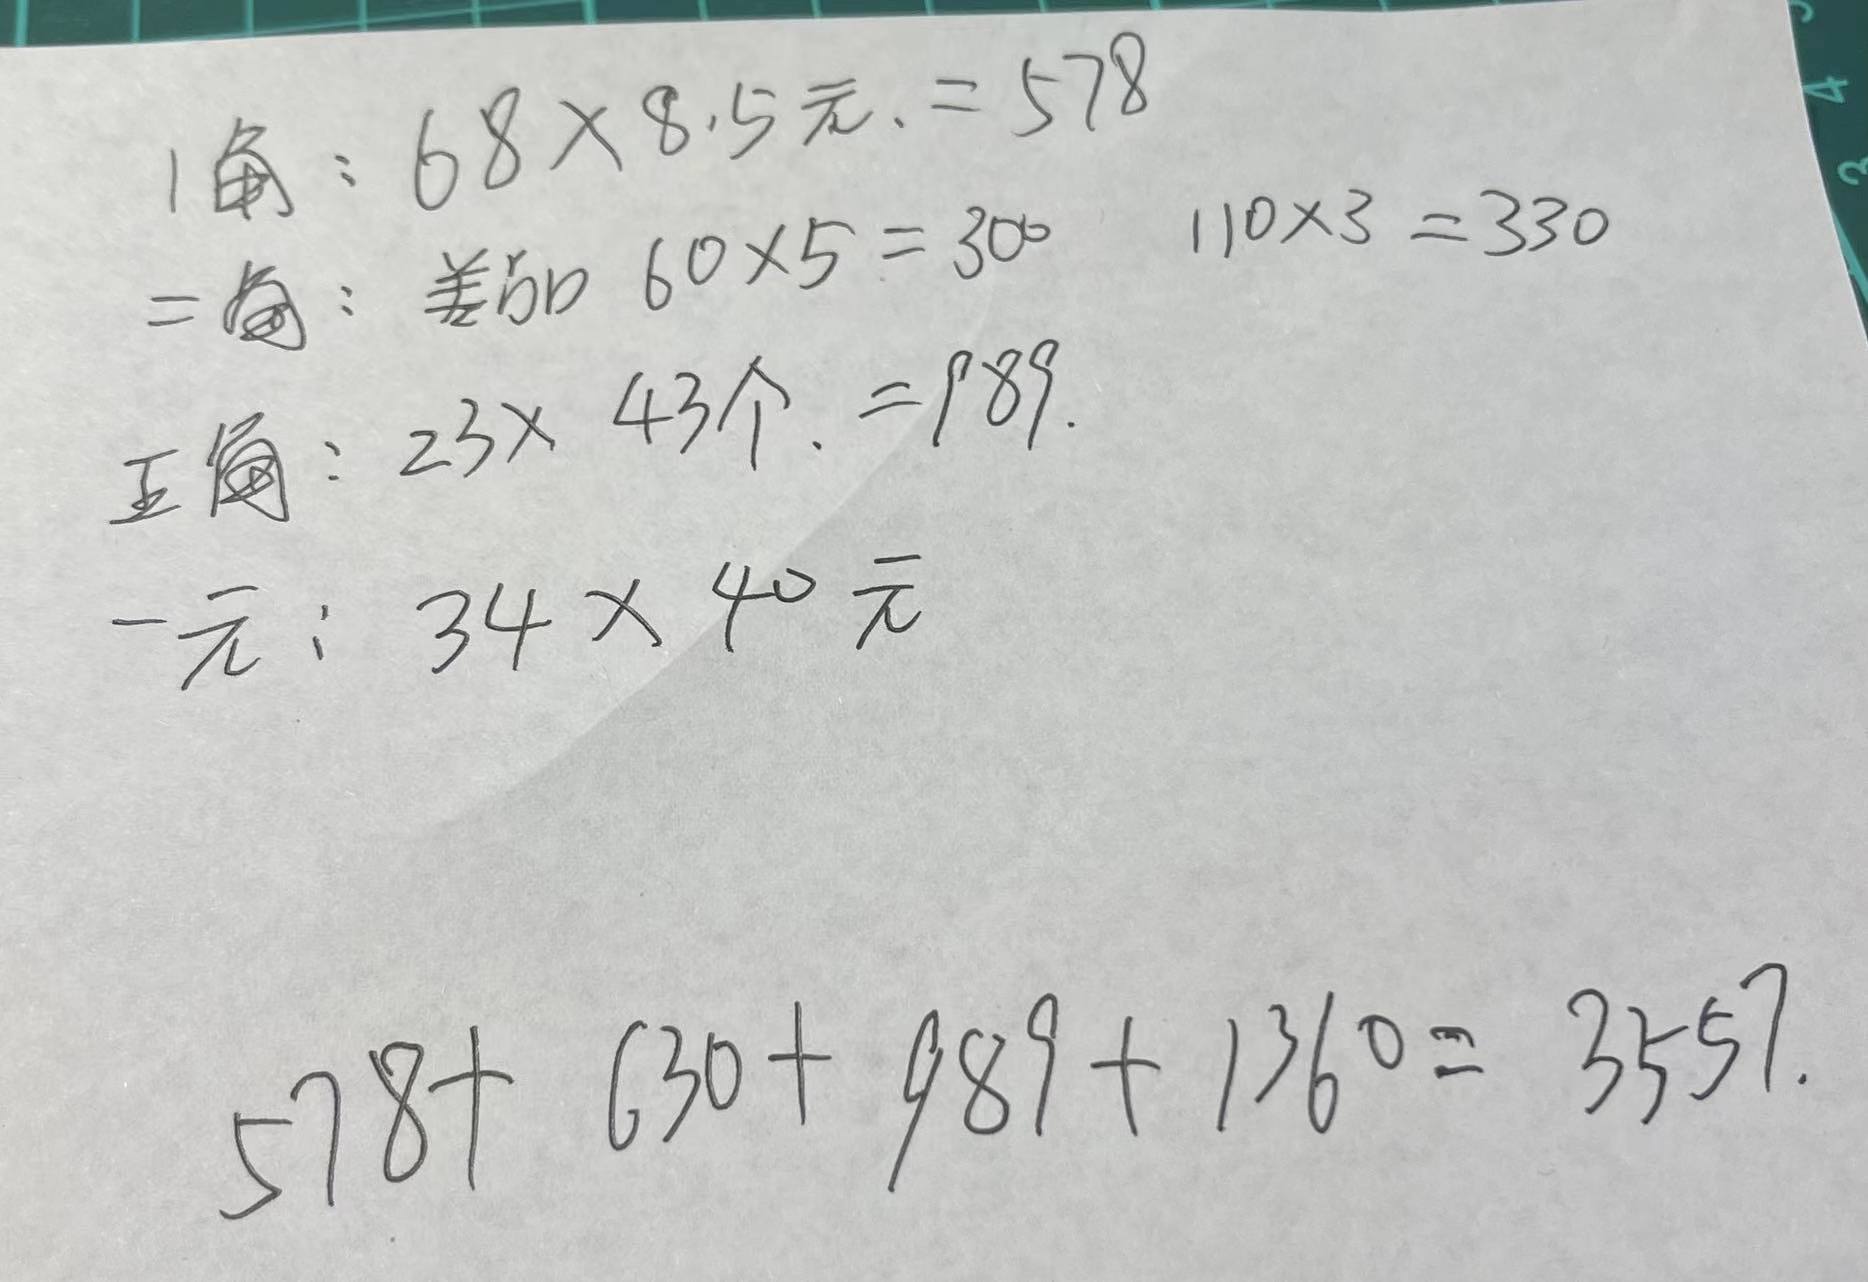 1角：68×8.5元.=578
二角：差品 60×5=300 110×3=330
五角：23×43个.=989.
一元：34×40元
578+630+989+1360=3557.